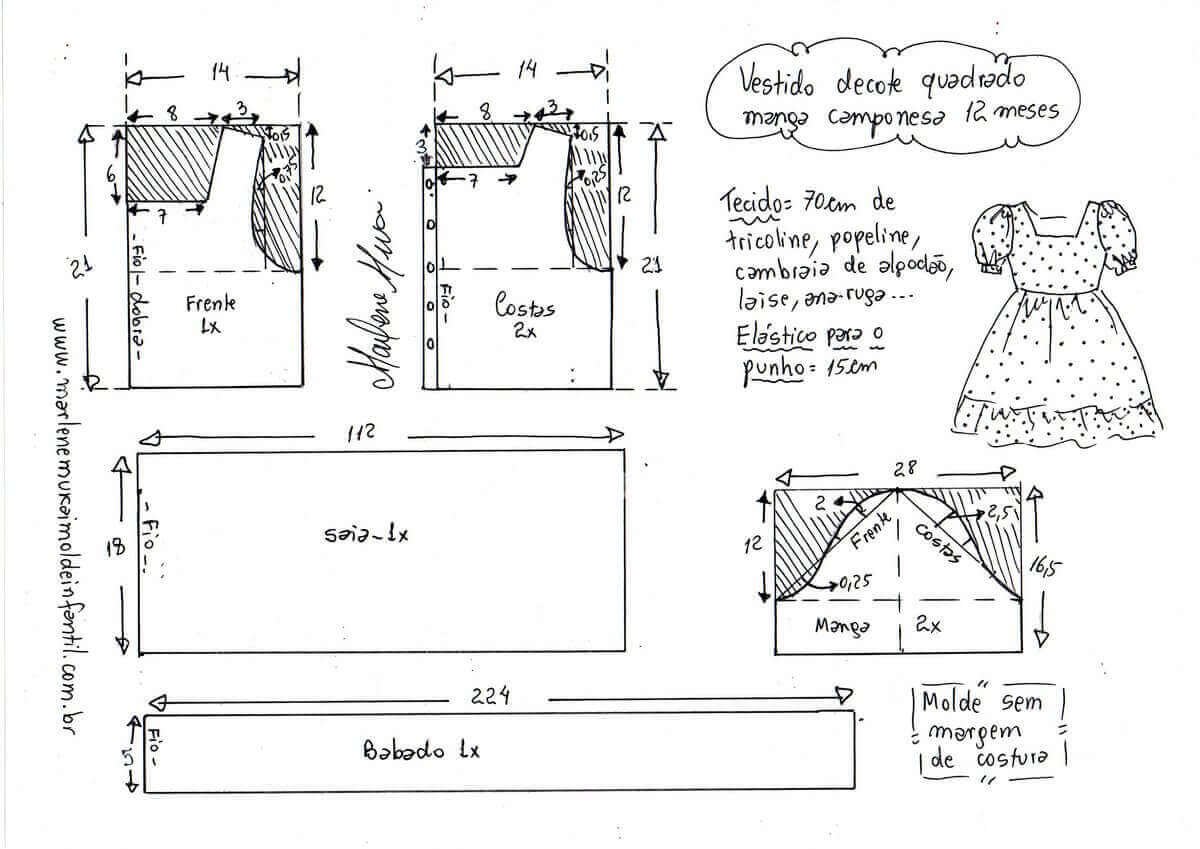 Vestido decote quadrado
manga camponesa 12 meses
14
8
3
0,5
6
0,75
12
7
21
Fio-dobra-
Frente
1x
14
8
3
0,5
3
0,25
12
7
21
Fio-
Costas
2x
Marlene Mukai
www.marlenemukaimoldeinfantil.com.br
Tecido= 70cm de
tricoline, popeline,
cambraia de algodão,
laise, ana-ruga...
Elástico para o
punho= 15cm
112
18
-Fio-
saia-1x
28
2
2,5
12
Frente
Costas
0,25
16,5
Manga 2x
224
5
Fio-
Babado 1x
Molde sem
margem
de costura